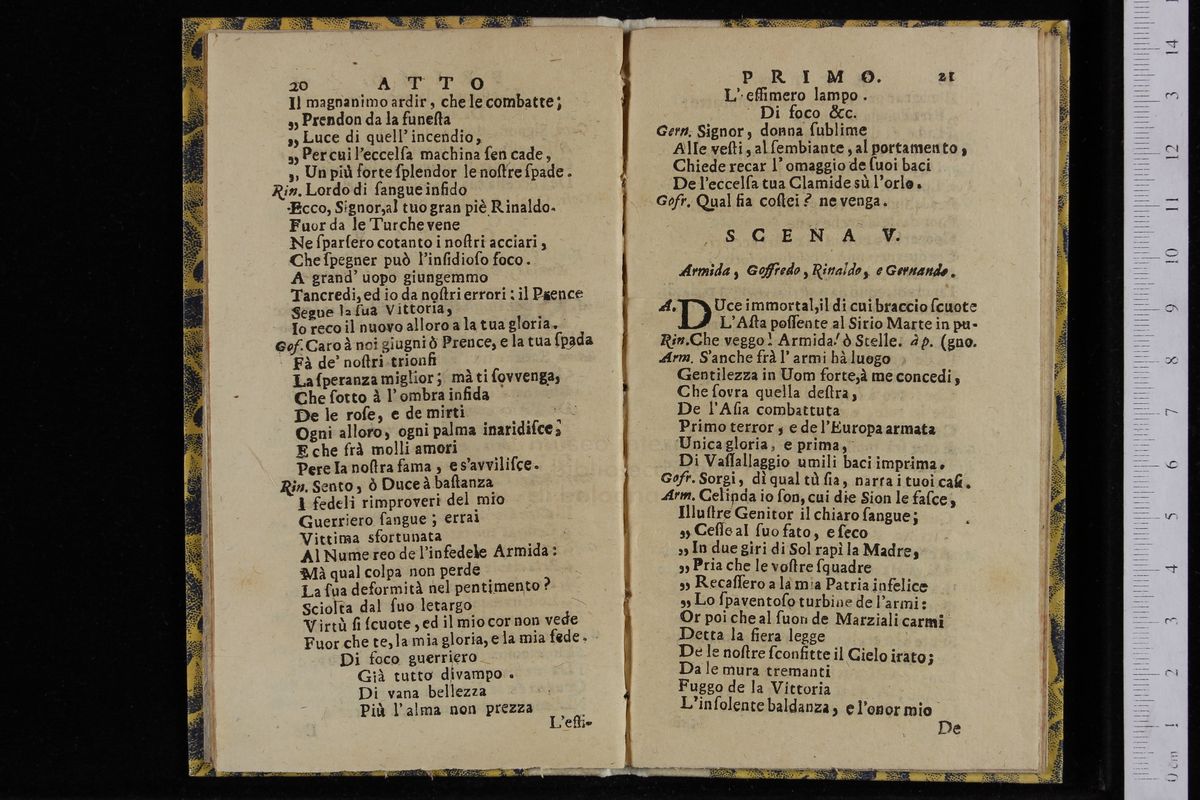 20 ATTO
Il magnanimo ardir, che le combatte;
„Prendon da la funeſta
„Luce di quell' incendio,
„Per cui l'eccelſa machina ſen cade,
„ Un più forte ſplendor le noſtre ſpade.
Rin. Lordo di ſangue infido
Ecco, Signor,al tuo gran piè Rinaldo.
Fuor da le Turche vene
Ne ſparſero cotanto i noſtri acciari,
Che ſpegner può l'inſidioſo foco.
A grand' uopo giungemmo
Tancredi, ed io da noſtri errori: il Prence
Segue la ſua Vittoria,
Io reco il nuovo alloro a la tua gloria.
Gof. Caro à noi giugni ò Prence, e la tua ſpada
Fà de' noſtri trionfi
La ſperanza miglior; mà ti ſovvenga,
Che ſotto à l'ombra infida
De le roſe, e de mirti
Ogni alloro, ogni palma inaridiſce;
E che frà molli amori
Pere la noſtra fama, e s'avviliſce.
Rin. Sento, ò Duce à baſtanza
I fedeli rimproveri del mio
Guerriero ſangue; errai
Vittima sfortunata
Al Nume reo de l'infedele Armida:
Mà qual colpa non perde
La ſua deformità nel pentimento?
Sciolta dal ſuo letargo
Virtù ſi ſcuote, ed il mio cor non vede
Fuor che te, la mia gloria, e la mia fede.
Di foco guerriero
Già tutto divampo.
Di vana bellezza
Più l'alma non prezza
L'effi-
PRIMO. 21
L'effimero lampo.
Di foco &c.
Gern. Signor, donna ſublime
Alle veſti, al ſembiante, al portamento,
Chiede recar l'omaggio de ſuoi baci
De l'eccelſa tua Clamide sù l'orlo.
Gofr. Qual ſia coſtei? ne venga.
SCENA V.
Armida, Goffredo, Rinaldo, e Gernando.
A. DUce immortal,il di cui braccio ſcuote
L'Aſta poſſente al Sirio Marte in pu-
Rin.Che veggo! Armida! ò Stelle. à p. (gno.
Arm. S'anche frà l'armi hà luogo
Gentilezza in Uom forte,à me concedi,
Che ſovra quella deſtra,
De l'Aſia combattuta
Primo terror, e de l'Europa armata
Unica gloria, e prima,
Di Vaſſallaggio umili baci imprima.
Gofr. Sorgi, dì qual tù ſia, narra i tuoi caſi.
Arm. Celinda io ſon, cui diè Sion le faſce,
Illuſtre Genitor il chiaro ſangue;
„ Ceſſe al ſuo fato, e ſeco
„In due giri di Sol rapì la Madre,
„Pria che le voſtre ſquadre
„ Recaſſero a la mia Patria infelice
„Lo ſpaventoſo turbine de l'armi:
Or poi che al ſuon de Marziali carmi
Detta la fiera legge
De le noſtre ſconfitte il Cielo irato;
Da le mura tremanti
Fuggo de la Vittoria
L'inſolente baldanza, e l'onor mio
De